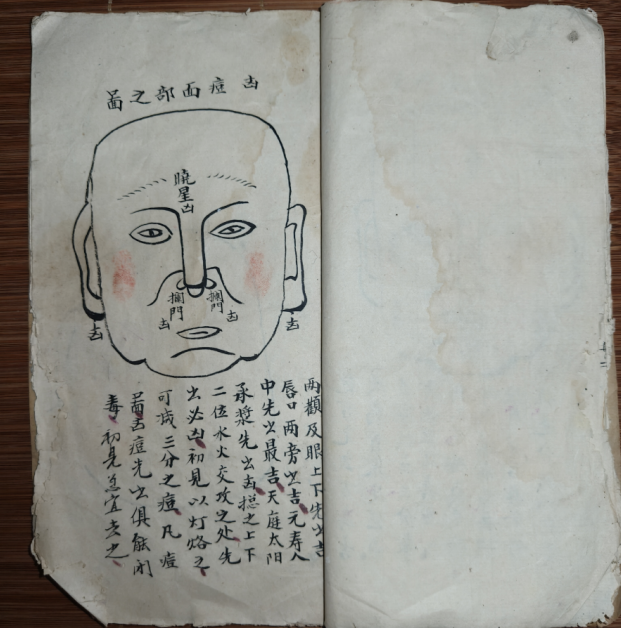 凶痘面部之啚
曉星凶
攔門凶
攔門凶
凶
凶
两顴及眼上下先出吉
唇口两旁出吉元寿人
中先出最吉天庭太阳
承漿先出凶揔之上下
二位水火交攻之处先
出必凶初見以灯烙之
可减三分之痘凡痘
啚凶痘先出俱能闭
毒初見急宜去之